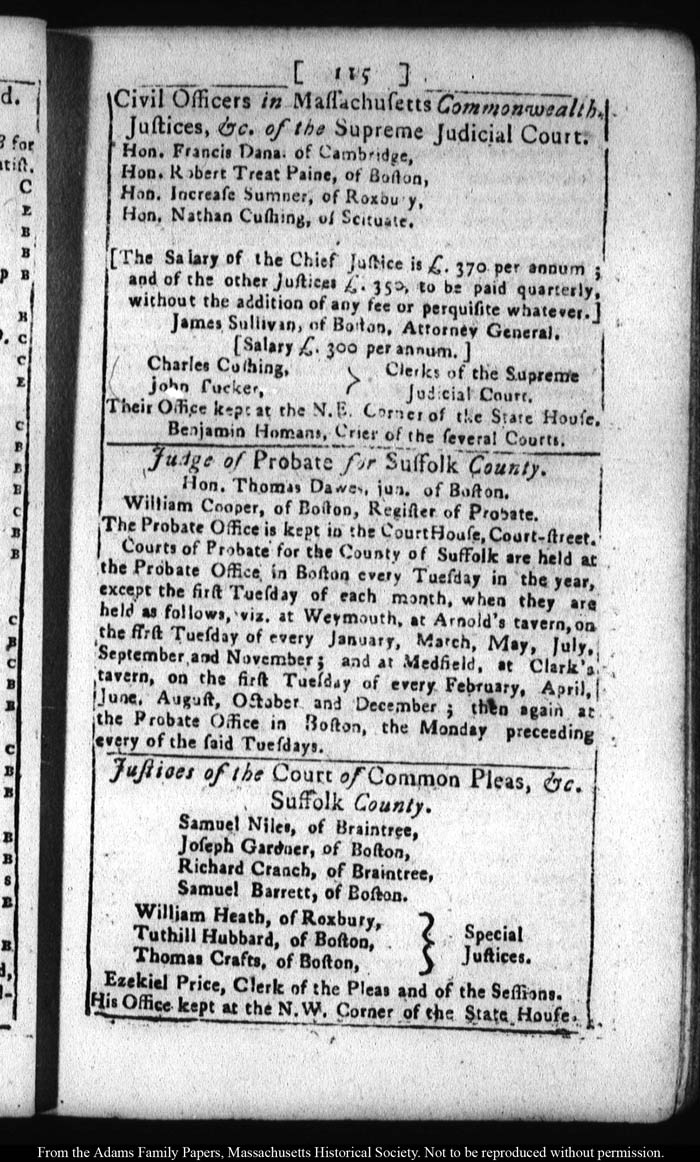 [ 115 ]
Civil Officers in Maſſachuſetts Commonwealth.
Juſtices, &c. of the Supreme Judicial Court.
Hon. Francis Dana. of Cambridge,
Hon. Robert Treat Paine, of Boſton,
Hon. Increaſe Sumner, of Roxbury,
Hon. Nathan Cuſhing, of Scituate.
[The Salary of the Chief Juſtice is £. 370 per annum ;
and of the other Juſtices £. 350, to be paid quarterly,
without the addition of any fee or perquiſite whatever.]
James Sullivan, of Boſton, Attorney General.
[Salary £. 300 per annum. ]
Charles Cuſhing, } Clerks of the Supreme
John Tucker, Judicial Court.
Their Office kept at the N.E. Corner of the State Houſe.
Benjamin Homans, Crier of the ſeveral Courts.
Judge of Probate for Suffolk County.
Hon. Thomas Dawes, jun. of Boſton.
William Cooper, of Boſton, Regiſter of Probate.
The Probate Office is kept in the CourtHouſe, Court-ſtreet.
Courts of Probate for the County of Suffolk are held at
the Probate Office in Boſton every Tueſday in the year,
except the firſt Tueſday of each month, when they are
held as follows, viz. at Weymouth, at Arnold's tavern, on
the firſt Tueſday of every January, March, May, July,
September and November ; and at Medfield, at Clark's
tavern, on the firſt Tueſday of every February, April,
June, Auguſt, October and December ; then again at
the Probate Office in Boſton, the Monday preceeding
every of the ſaid Tueſdays.
Juſtices of the Court of Common Pleas, &c.
Suffolk County.
Samuel Niles, of Braintree,
Joſeph Gardner, of Boſton,
Richard Cranch, of Braintree,
Samuel Barrett, of Boſton.
William Heath, of Roxbury,
Tuthill Hubbard, of Boſton, } Special
Thomas Crafts, of Boſton, Juſtices.
Ezekiel Price, Clerk of the Pleas and of the Seſſions.
His Office kept at the N.W. Corner of the State Houſe.
From the Adams Family Papers, Massachusetts Historical Society. Not to be reproduced without permission.